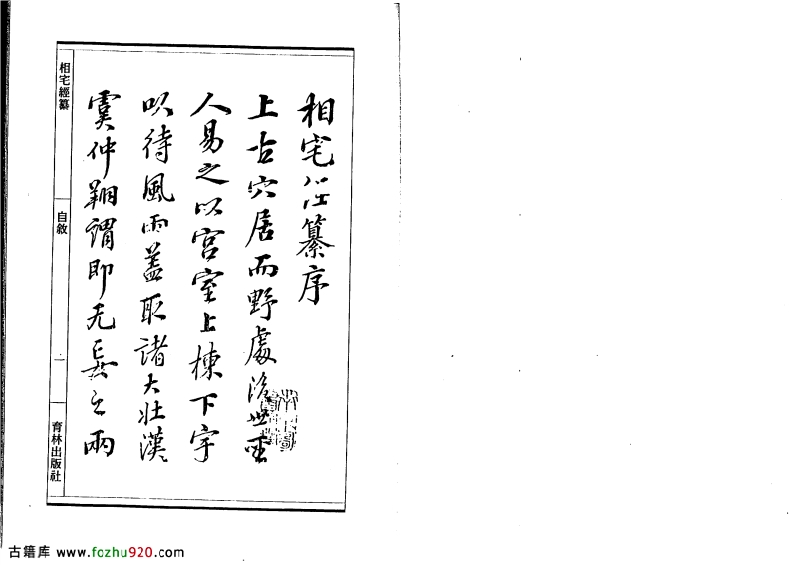 相宅經纂序
上古穴居而野處後世聖
人易之以宮室上棟下宇
以待風雨蓋取諸大壯漢
虞仲翔謂即无妄之兩
相宅經纂
自敘
一
育林出版社
古籍库 www.fozhu920.com